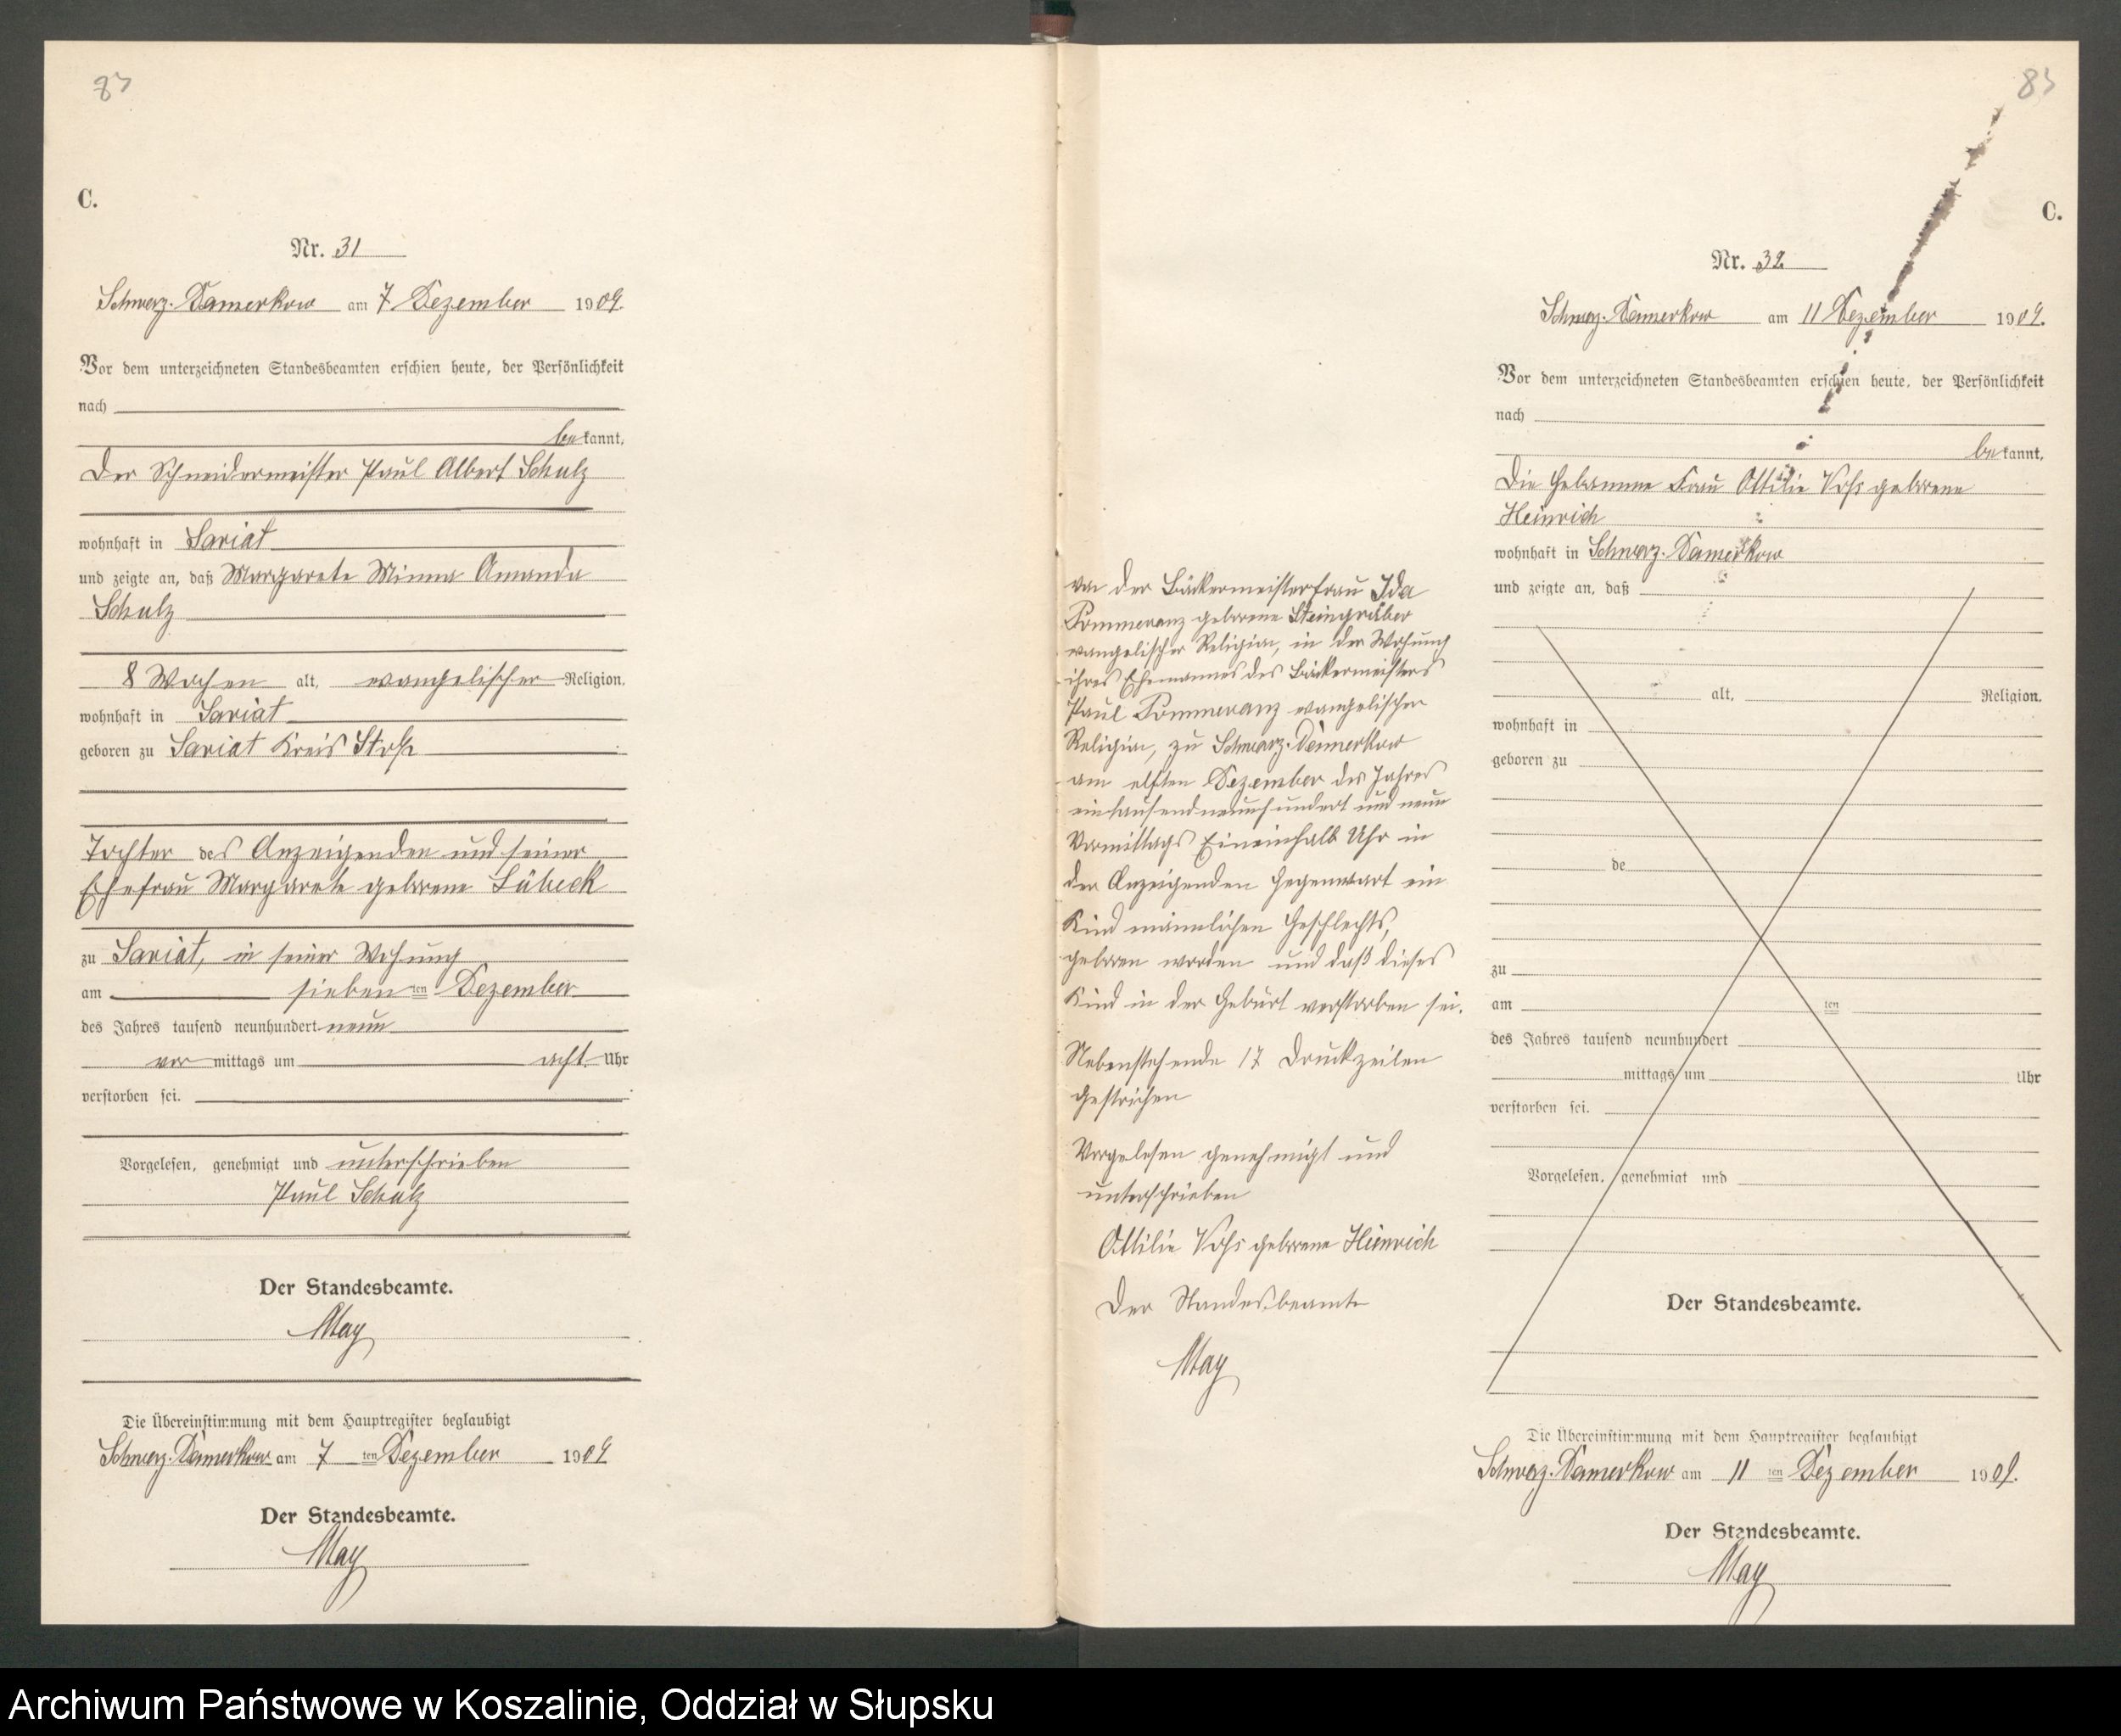 83
C.
Nr. 31
Schwarz-Damerkow am 7 Dezember 1909.
Vor dem unterzeichneten Standesbeamten erschien heute, der Persönlichkeit
nach
bekannt,
Der Schneidermeister Paul Albert Schulz
wohnhaft in Lariat
und zeigte an, daß Margarete Minna Amanda
Schulz
8 Wochen alt, evangelischer Religion,
wohnhaft in Lariat
geboren zu Lariat Kreis Stolp
Tochter des Anzeigenden und seiner
Ehefrau Margarete geborene Lübeck
zu Lariat, in seiner Wohnung
am sieben ten Dezember
des Jahres tausend neunhundert neun
vor mittags um acht Uhr
verstorben sei.
Vorgelesen, genehmigt und unterschrieben
Paul Schulz
Der Standesbeamte.
May
Die Übereinstimmung mit dem Hauptregister beglaubigt
Schwarz-Damerkow am 7 ten Dezember 1909
Der Standesbeamte.
May
83
C.
Nr. 32
Schwarz-Damerkow am 11 Dezember 1909.
Vor dem unterzeichneten Standesbeamten erschien heute, der Persönlichkeit
nach
bekannt,
Die Hebamme Frau Ottilie Voß geborene
Heinrich
wohnhaft in Schwarz-Damerkow
und zeigte an, daß
von der Bäckermeisterfrau Ida
Pommeranz geborene Steingräber
evangelischer Religion, in der Wohnung
ihres Ehemannes des Bäckermeisters
Paul Pommeranz evangelischer
Religion, zu Schwarz-Damerkow
am elften Dezember des Jahres
eintausendneunhundert und neun
Vormittags Eineinhalb Uhr in
der Anzeigenden Gegenwart ein
Kind männlichen Geschlechts,
geboren worden und daß dieses
Kind in der Geburt verstorben sei.
Nebenstehende 17 Druckzeilen
gestrichen
Vorgelesen genehmigt und
unterschrieben
Ottilie Voß geborene Heinrich
Der Standesbeamte
May
alt, Religion,
wohnhaft in
geboren zu
de
zu
am ten
des Jahres tausend neunhundert
mittags um Uhr
verstorben sei.
Vorgelesen, genehmigt und
Der Standesbeamte.
Die Übereinstimmung mit dem Hauptregister beglaubigt
Schwarz-Damerkow am 11 ten Dezember 1909.
Der Standesbeamte.
May
Archiwum Państwowe w Koszalinie, Oddział w Słupsku